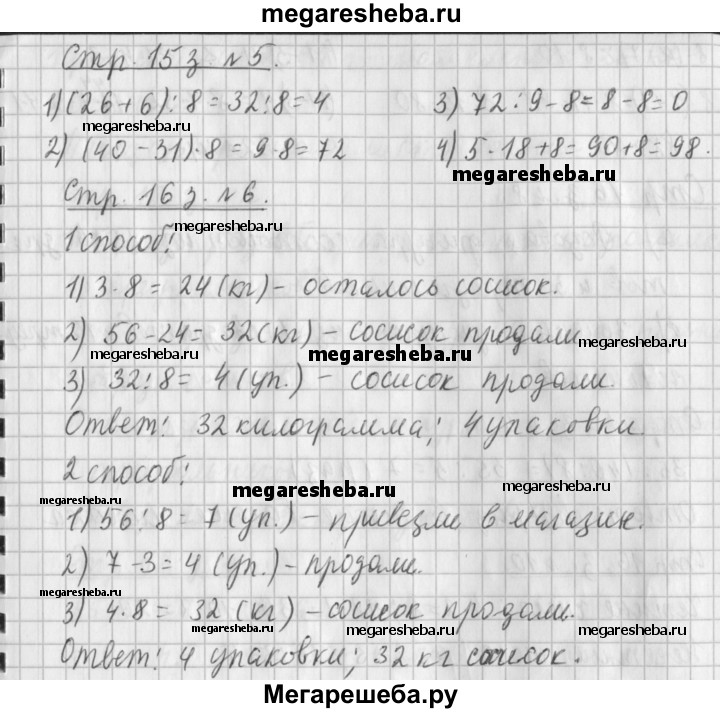 megaresheba.ru
Стр. 15 з. №5.
1) (26+6):8=32:8=4 3) 72:9-8=8-8=0
megaresheba.ru
2) (40-31)·8=9·8=72 4) 5·18+8=90+8=98.
megaresheba.ru
Стр. 16 з. №6.
megaresheba.ru
1 способ:
1) 3·8=24 (кг) - осталось сосисок.
2) 56-24=32 (кг) - сосисок продали
megaresheba.ru megaresheba.ru megaresheba.ru
3) 32:8=4 (уп.) - сосисок продали.
Ответ: 32 килограмма; 4 упаковки.
2 способ:
megaresheba.ru megaresheba.ru megaresheba.ru
1) 56:8=7 (уп.) - привезли в магазин.
2) 7-3=4 (уп.) - продали.
megaresheba.ru
3) 4·8=32 (кг) - сосисок продали.
megaresheba.ru megaresheba.ru megaresheba.ru
Ответ: 4 упаковки; 32 кг сосисок.
Мегарешеба.ру